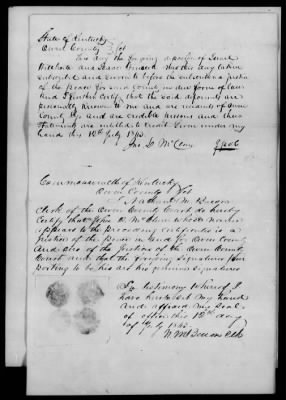 State of Kentucky
Owen County Sct
This day the foregoing deposition of
and was duly taken
subscribed and sworn to before the subscriber a justice
of the peace for said county in due form of law
and I further certify that the said deponents are
personally known to me and are residents of Owen
County Ky and are credible persons and their
statements are entitled to credit Given under my
hand this 12th July 1843
Jno
Commonwealth of Kentucky
Owen County Sct
I Nathaniel M. Bacon
Clerk of the Owen County Court do hereby
certify that John whose name
appears to the preceding certificates is a
justice of the peace in and for Owen County
and also of the Justices of the Owen County
Court and that the foregoing signatures pur
porting to be his are his genuine signatures
In testimony Whereof I
have hereunto set my hand
and affixed my seal
of office this 12th day
of July 1843
N. M. Bacon Clk